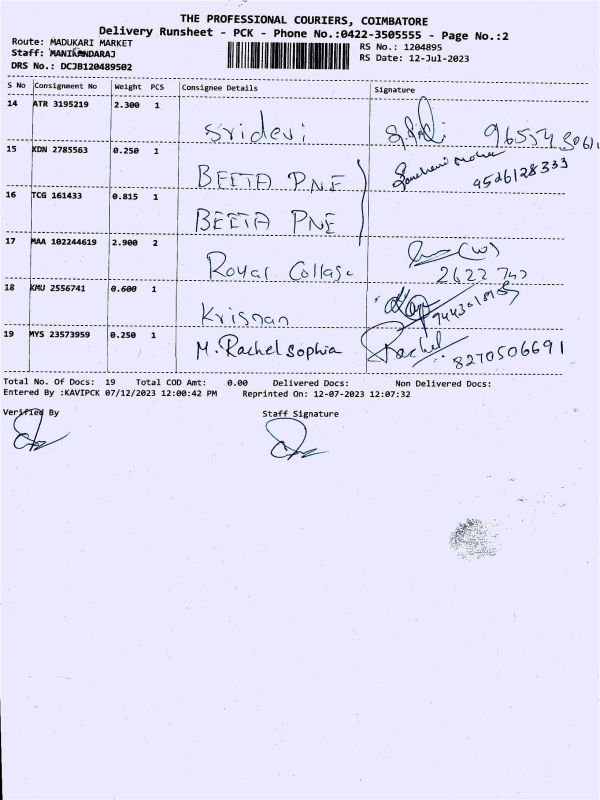 THE PROFESSIONAL COURIERS, COIMBATORE
Delivery Runsheet - PCK - Phone No.:0422-3505555 - Page No.:2
Route: MADUKARI MARKET
RS No.: 1204895
Staff: MANIKANDARAJ
RS Date: 12-Jul-2023
DRS No.: DCJB120489502
S No Consignment No Weight PCS Consignee Details Signature
14 ATR 3195219 2.300 1 Sridevi
15 KDN 2785563 0.250 1 BEETA PNE 9526128333
16 TCG 161433 0.815 1 BEETA PNE
17 MAA 102244619 2.900 2 Royal (W)
18 KMU 2556741 0.600 1 Krisnan
19 MYS 23573959 0.250 1 M. Rachel sophia Rachel 8270506691
Total No. Of Docs: 19 Total COD Amt: 0.00 Delivered Docs: Non Delivered Docs:
Entered By :KAVIPCK 07/12/2023 12:00:42 PM Reprinted On: 12-07-2023 12:07:32
Verified By Staff Signature